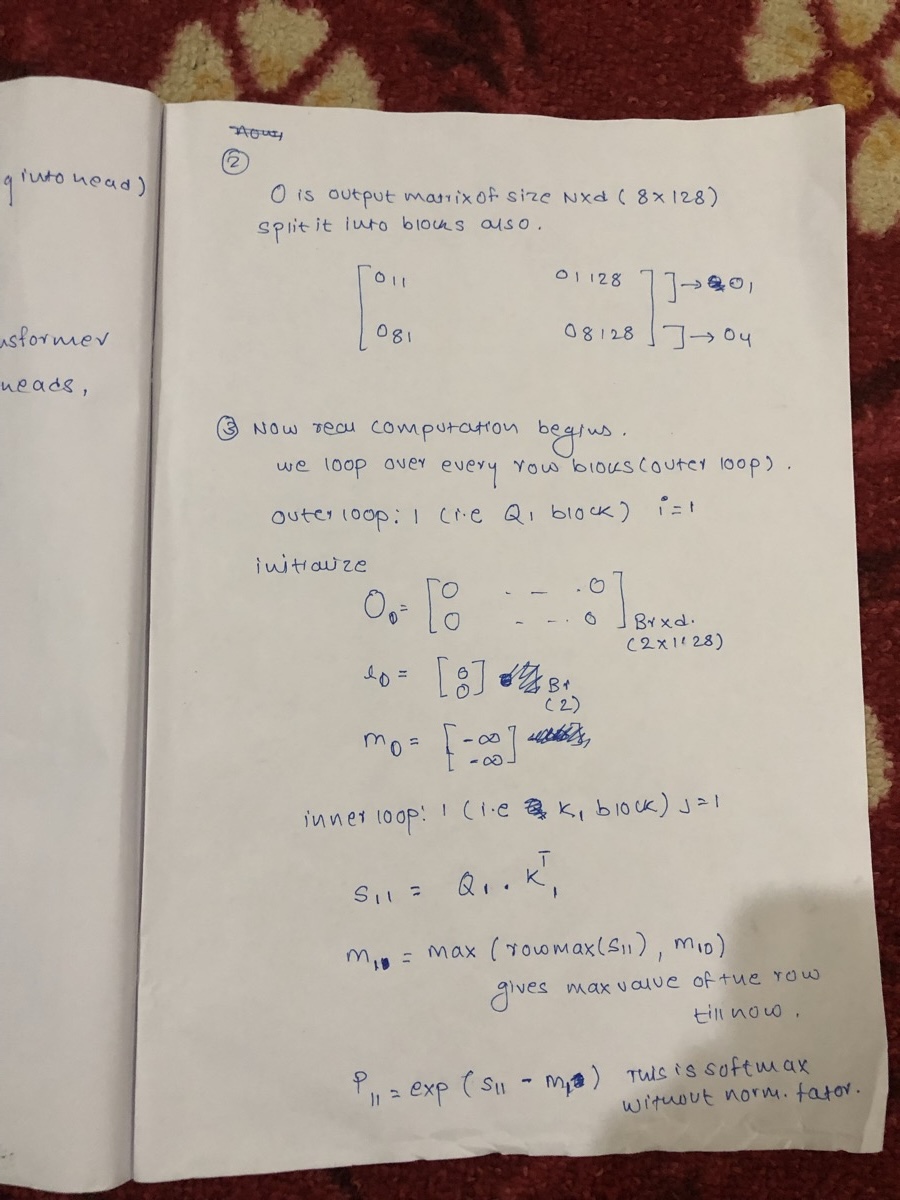 g into head)
nsformer
heads,
②
O is output matrix of size Nxd (8x128)
split it into blocks also.
[ O11 O1128 ] ] → O1
[ O81 O8128 ] ] → O4
③ Now real computation begins.
we loop over every row blocks (outer loop).
outer loop: 1 (i.e Q1 block) i=1
initialize
O0 = [ 0 . — . 0
0 - - . . 0 ] Brxd.
(2x1128)
l0 = [ 0
0 ] Br
(2)
m0 = [ -∞
-∞ ]
inner loop: 1 (i.e K1 block) J=1
S11 = Q1 . K1^T
m1 = max (rowmax(S11), m10)
gives max value of the row
till now.
P11 = exp (S11 - m1) This is softmax
without norm. fator.